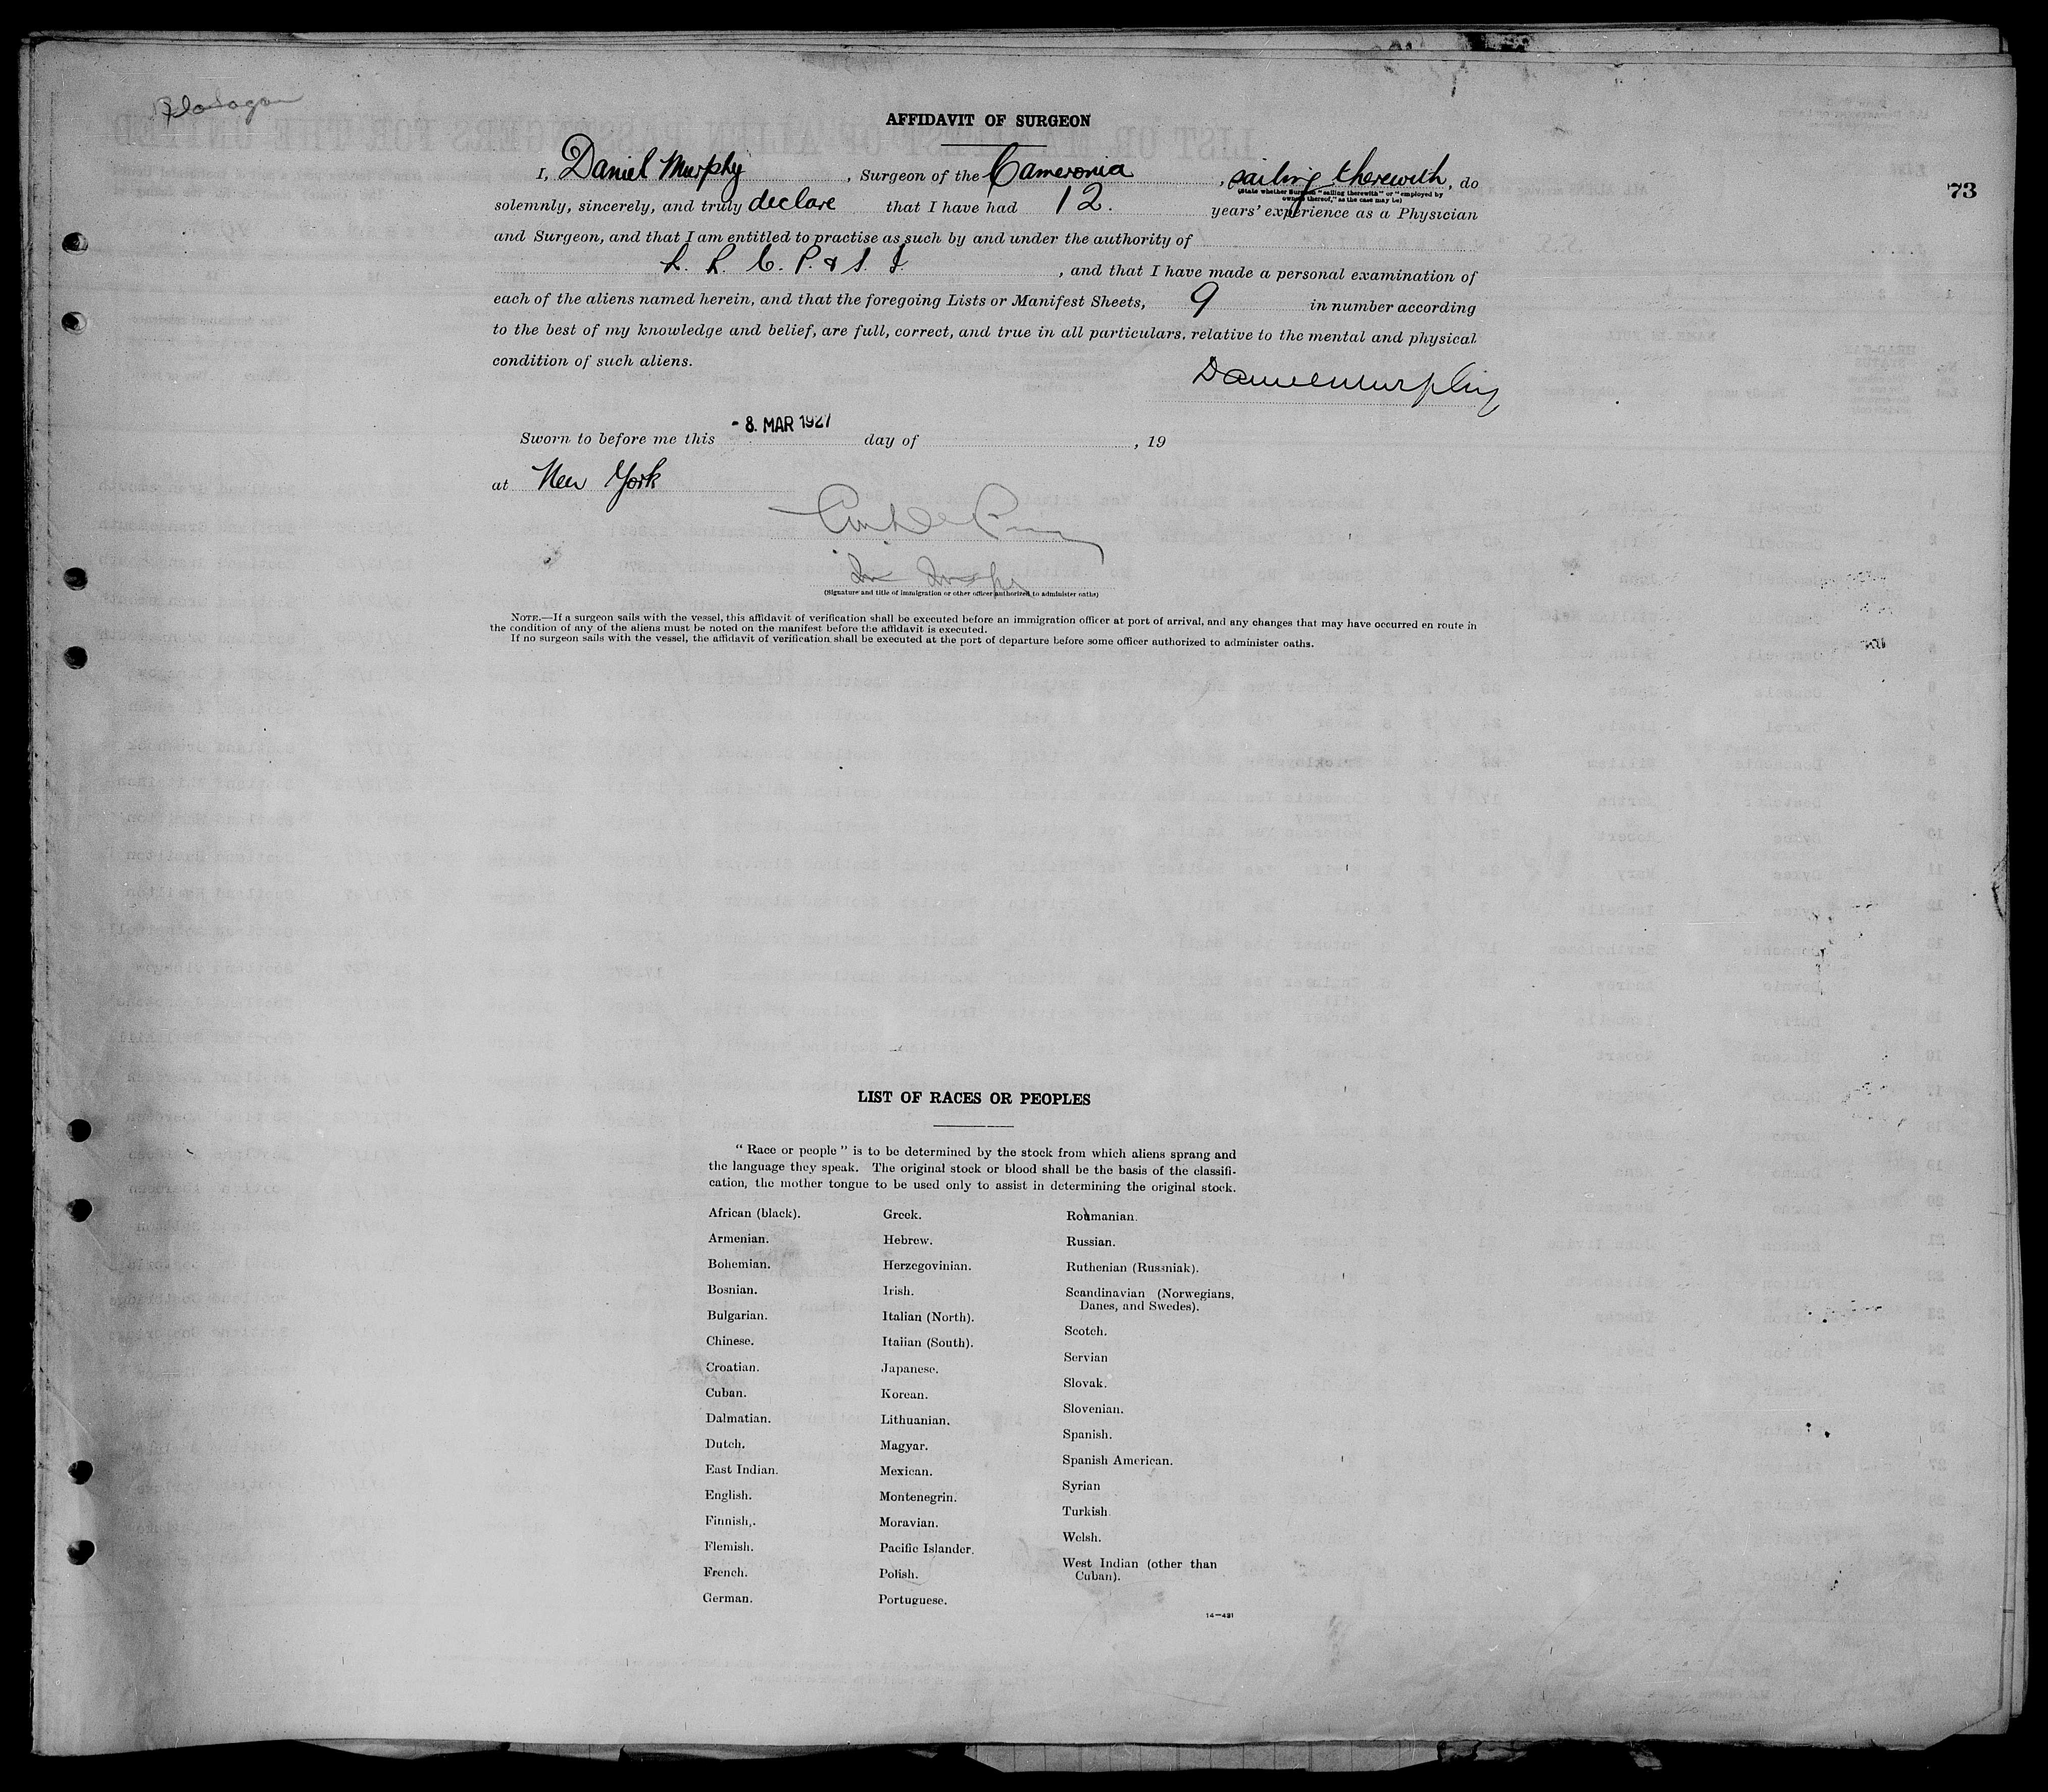 AFFIDAVIT OF SURGEON
I, Daniel Murphy, Surgeon of the Cameronia, sailing therewith, do
(State whether Surgeon "sailing therewith" or "employed by
owners thereof," as the case may be)
73
solemnly, sincerely, and truly declare that I have had 12. years' experience as a Physician
and Surgeon, and that I am entitled to practise as such by and under the authority of
L. R. C. P. & S. I., and that I have made a personal examination of
each of the aliens named herein, and that the foregoing Lists or Manifest Sheets, 9 in number according
to the best of my knowledge and belief, are full, correct, and true in all particulars, relative to the mental and physical
condition of such aliens.
Daniel Murphy
Sworn to before me this -8. MAR 1927 day of , 19
at New York
(Signature and title of immigration or other officer authorized to administer oaths)
NOTE.—If a surgeon sails with the vessel, this affidavit of verification shall be executed before an immigration officer at port of arrival, and any changes that may have occurred en route in
the condition of any of the aliens must be noted on the manifest before the affidavit is executed.
If no surgeon sails with the vessel, the affidavit of verification shall be executed at the port of departure before some officer authorized to administer oaths.
LIST OF RACES OR PEOPLES
"Race or people" is to be determined by the stock from which aliens sprang and
the language they speak. The original stock or blood shall be the basis of the classifi-
cation, the mother tongue to be used only to assist in determining the original stock.
African (black).
Armenian.
Bohemian.
Bosnian.
Bulgarian.
Chinese.
Croatian.
Cuban.
Dalmatian.
Dutch.
East Indian.
English.
Finnish,.
Flemish.
French.
German.
Greek.
Hebrew.
Herzegovinian.
Irish.
Italian (North).
Italian (South).
Japanese.
Korean.
Lithuanian.
Magyar.
Mexican.
Montenegrin.
Moravian.
Pacific Islander.
Polish.
Portuguese.
Roumanian.
Russian.
Ruthenian (Russniak).
Scandinavian (Norwegians,
Danes, and Swedes).
Scotch.
Servian
Slovak.
Slovenian.
Spanish.
Spanish American.
Syrian
Turkish
Welsh.
West Indian (other than
Cuban).
14—431